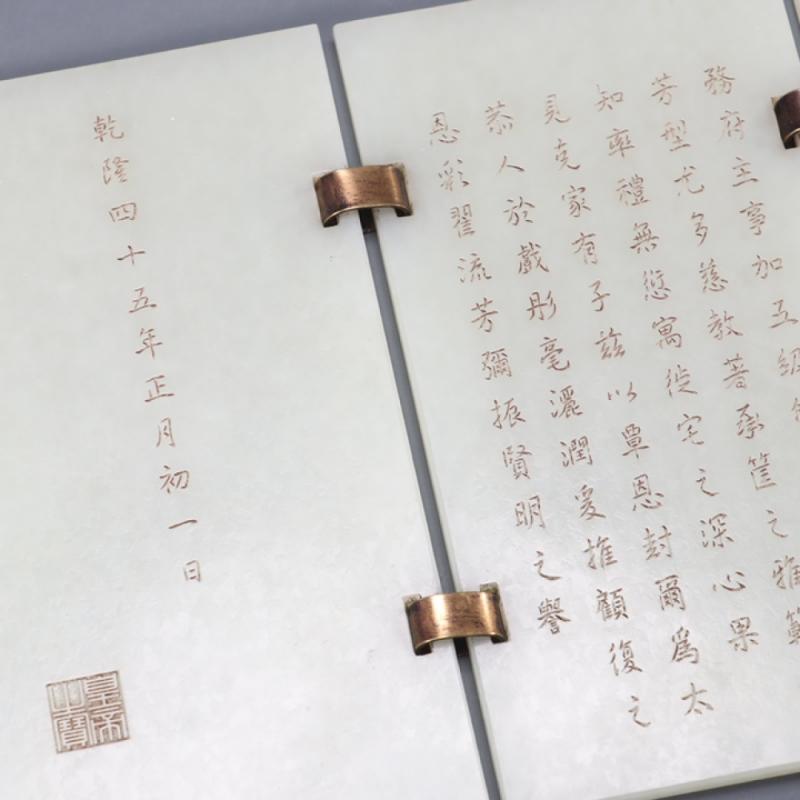 務府主事加五級
芳型尤多慈教著承筐之雅範
知率禮無愆寓徙宅之深心果
見克家有子茲以覃恩封爾爲太
恭人於戲彤毫灑潤爰推顧復之
恩彩翟流芳彌振賢明之譽
乾隆四十五年正月初一日
皇帝之寶